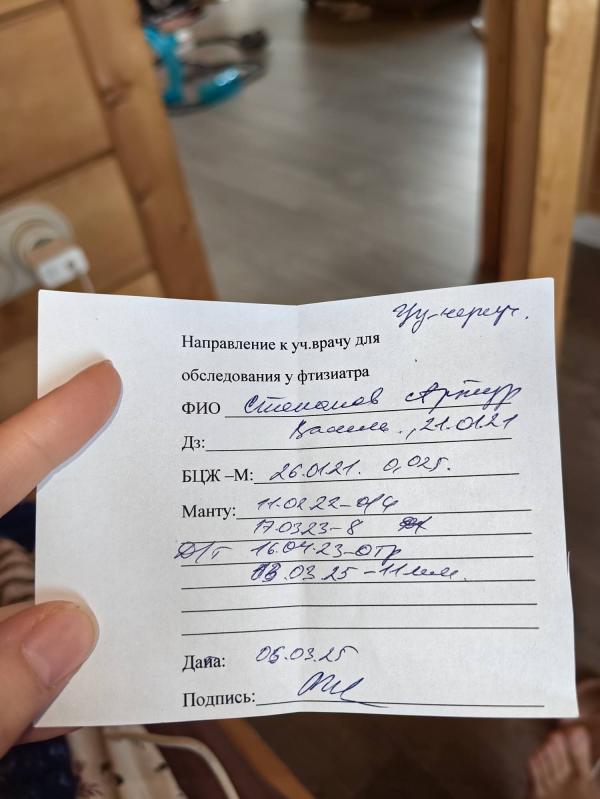 Направление к уч.врачу для
обследования у фтизиатра
ФИО Степанов Артур
Дз: Васил., 21.01.21
БЦЖ –М: 26.01.21. 0,025.
Манту: 11.02.22–о/ф
17.03.23–8
Д/т 16.04.23–отр
03.03.25 –11мм.
Дата: 06.03.25
Подпись: